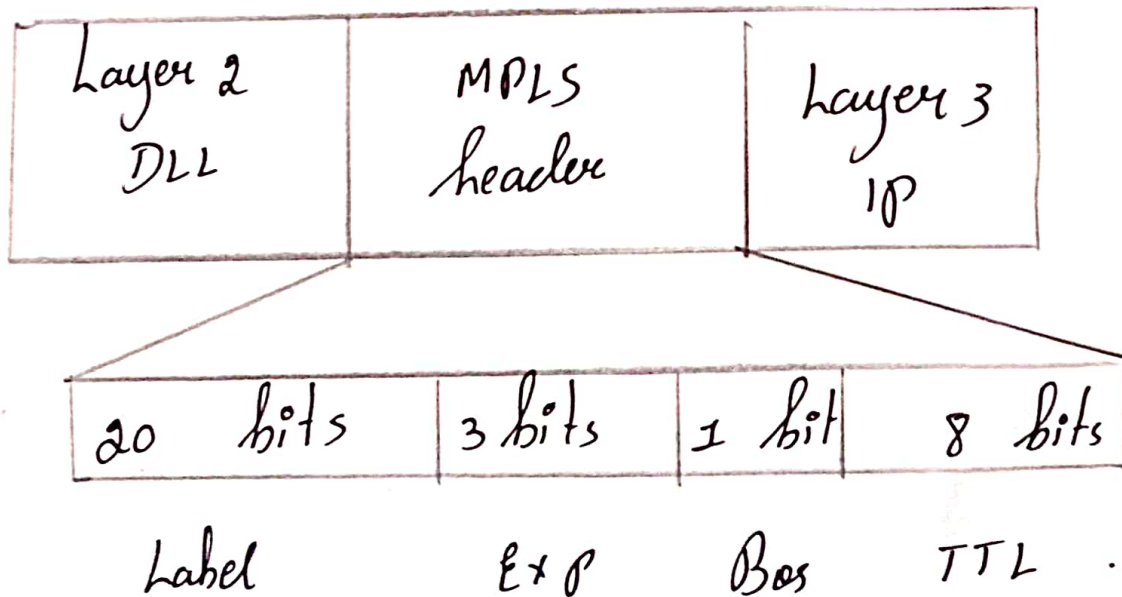 Layer 2
DLL
MPLS
header
Layer 3
IP
20 bits
3 bits
1 bit
8 bits
Label
Exp
Bos
TTL .